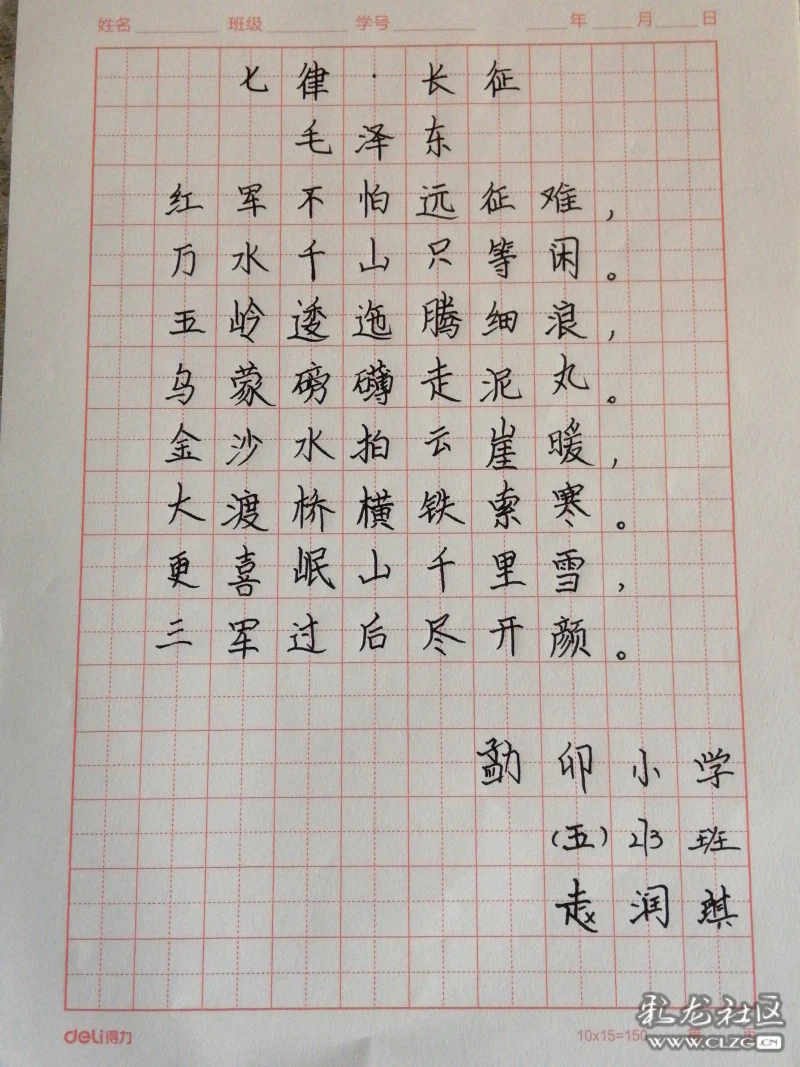 姓名 班级 学号 年 月 日
七律·长征
毛泽东
红军不怕远征难，
万水千山只等闲。
五岭逶迤腾细浪，
乌蒙磅礴走泥丸。
金沙水拍云崖暖，
大渡桥横铁索寒。
更喜岷山千里雪，
三军过后尽开颜。
勐卯小学
（五）213班
赵润琪
deli得力
10x15=150
彩龙社区
WWW.CLZG.CN